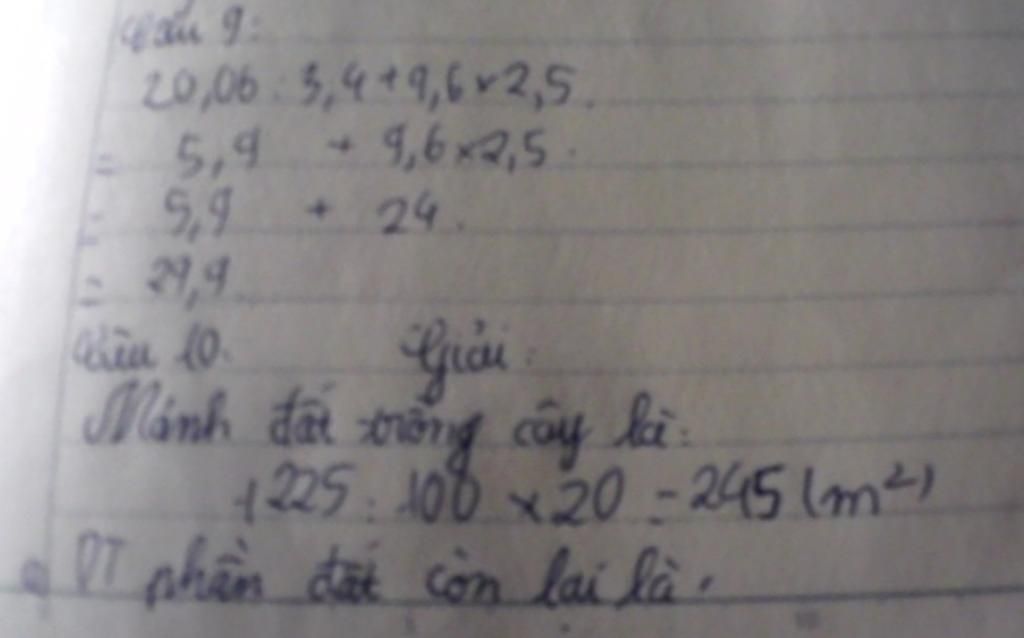 Câu 9:
20,06 : 3,4 + 9,6 × 2,5.
= 5,9 + 9,6 × 2,5.
= 5,9 + 24.
= 29,9
Câu 10. Giải:
Mảnh đất trồng cây là:
1225 : 100 × 20 = 245 (m²)
DT phần đất còn lại là.